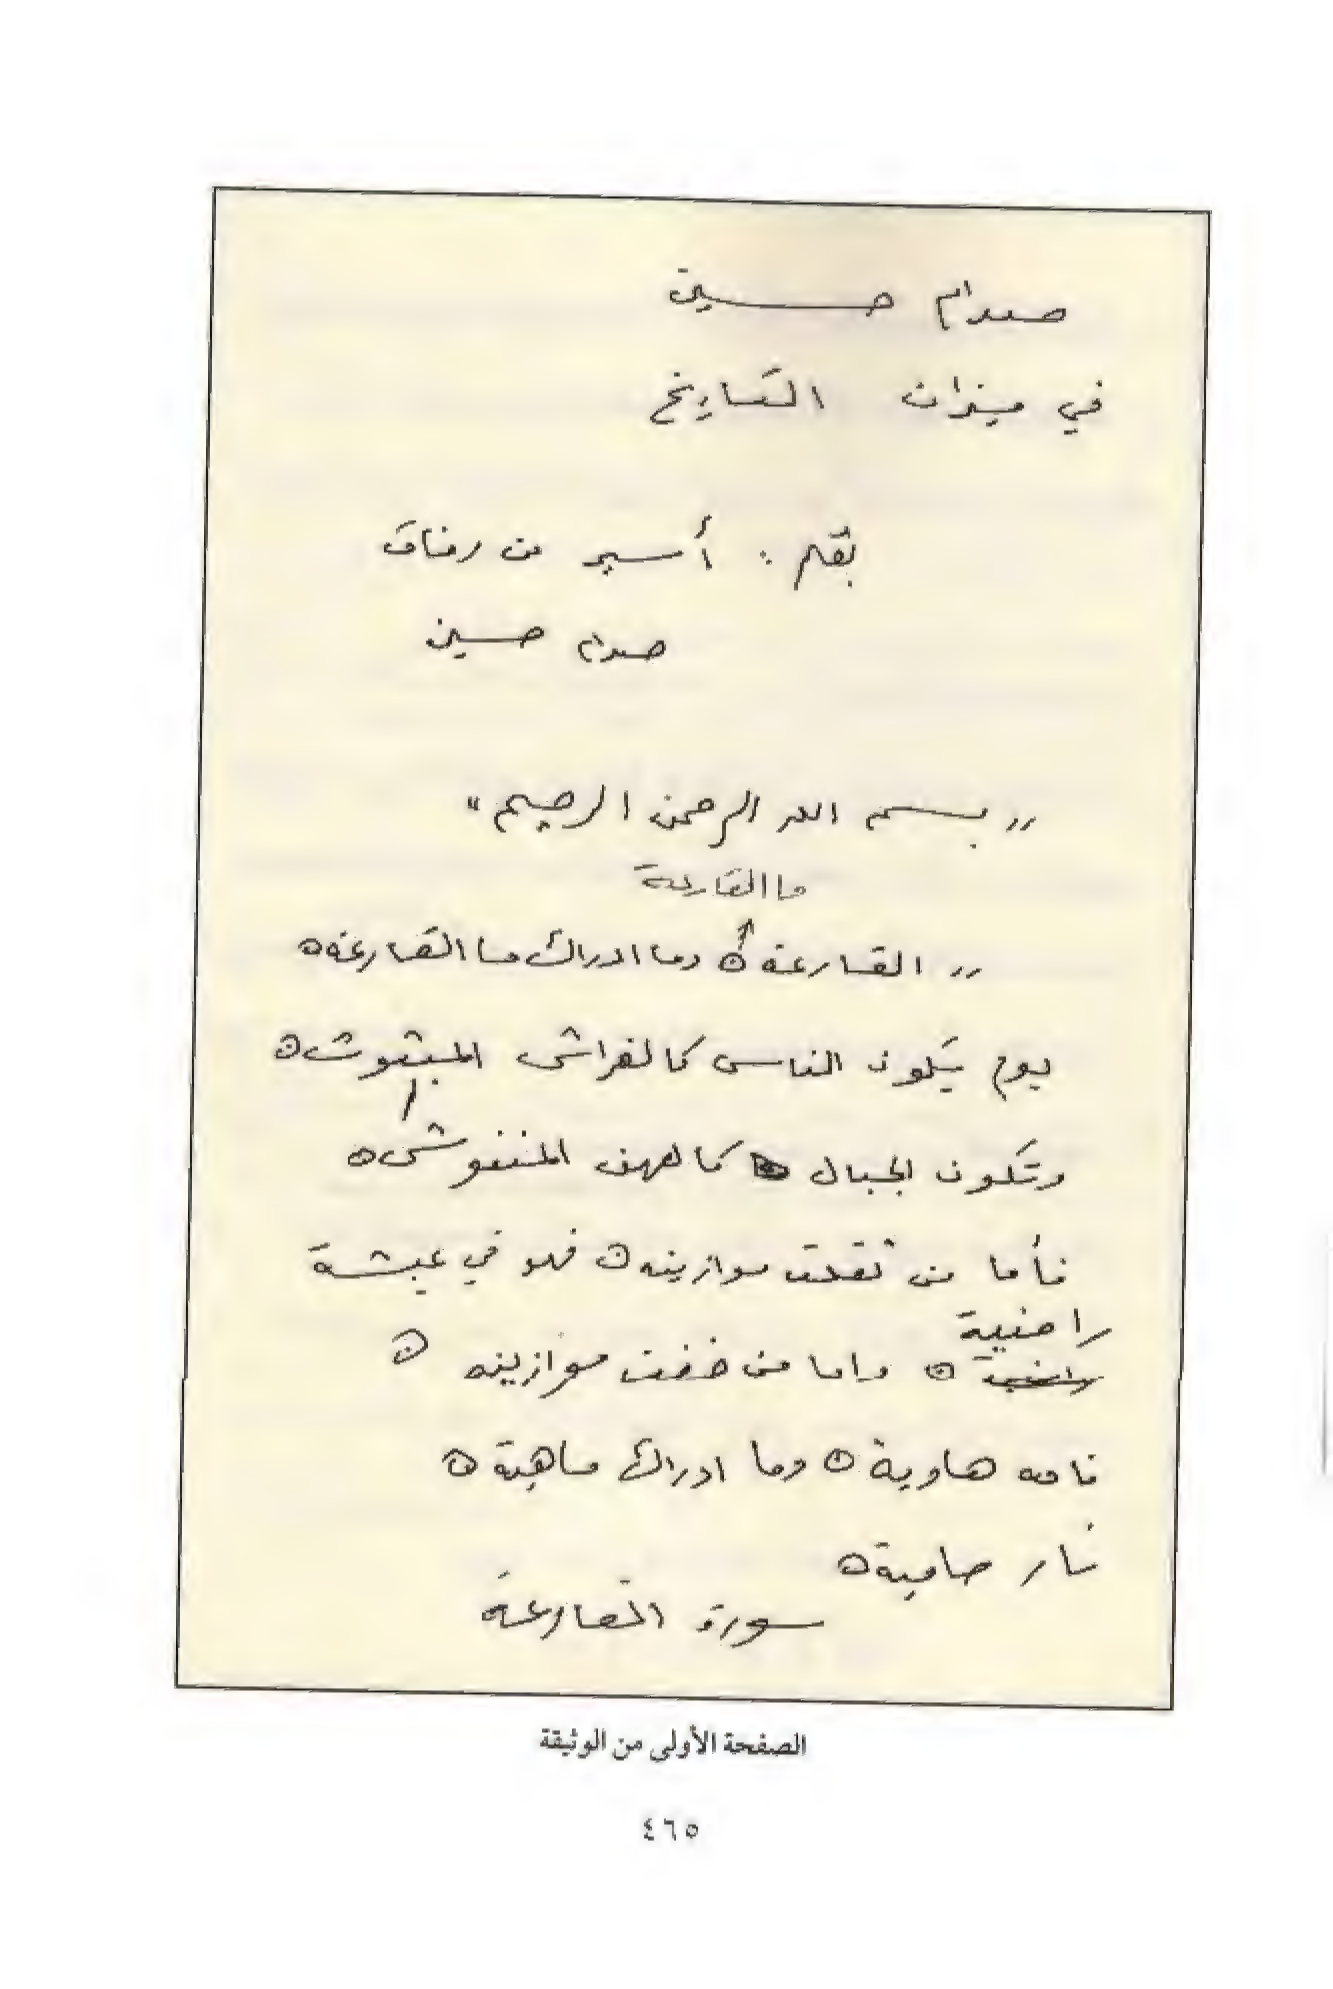 صدام حسين
في ميزان التاريخ
بقلم : أسير من رفاق
صدام حسين
" بسم الله الرحمن الرحيم "
ما القارعة
" القارعة ه وما ادراك ما القارعة ه
يوم يكون الناس كالفراش المبثوث ه
وتكون الجبال كالعهن المنفوش ه
فأما من ثقلت موازينه ه فهو في عيشة
راضية
ه واما من خفت موازينه ه
فامه هاوية ه وما ادراك ماهية ه
نار حامية ه
سورة القارعة
الصفحة الأولى من الوثيقة
٤٦٥